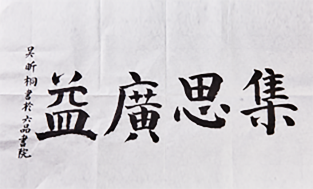 集思廣益
吴昕桐書於六品書院